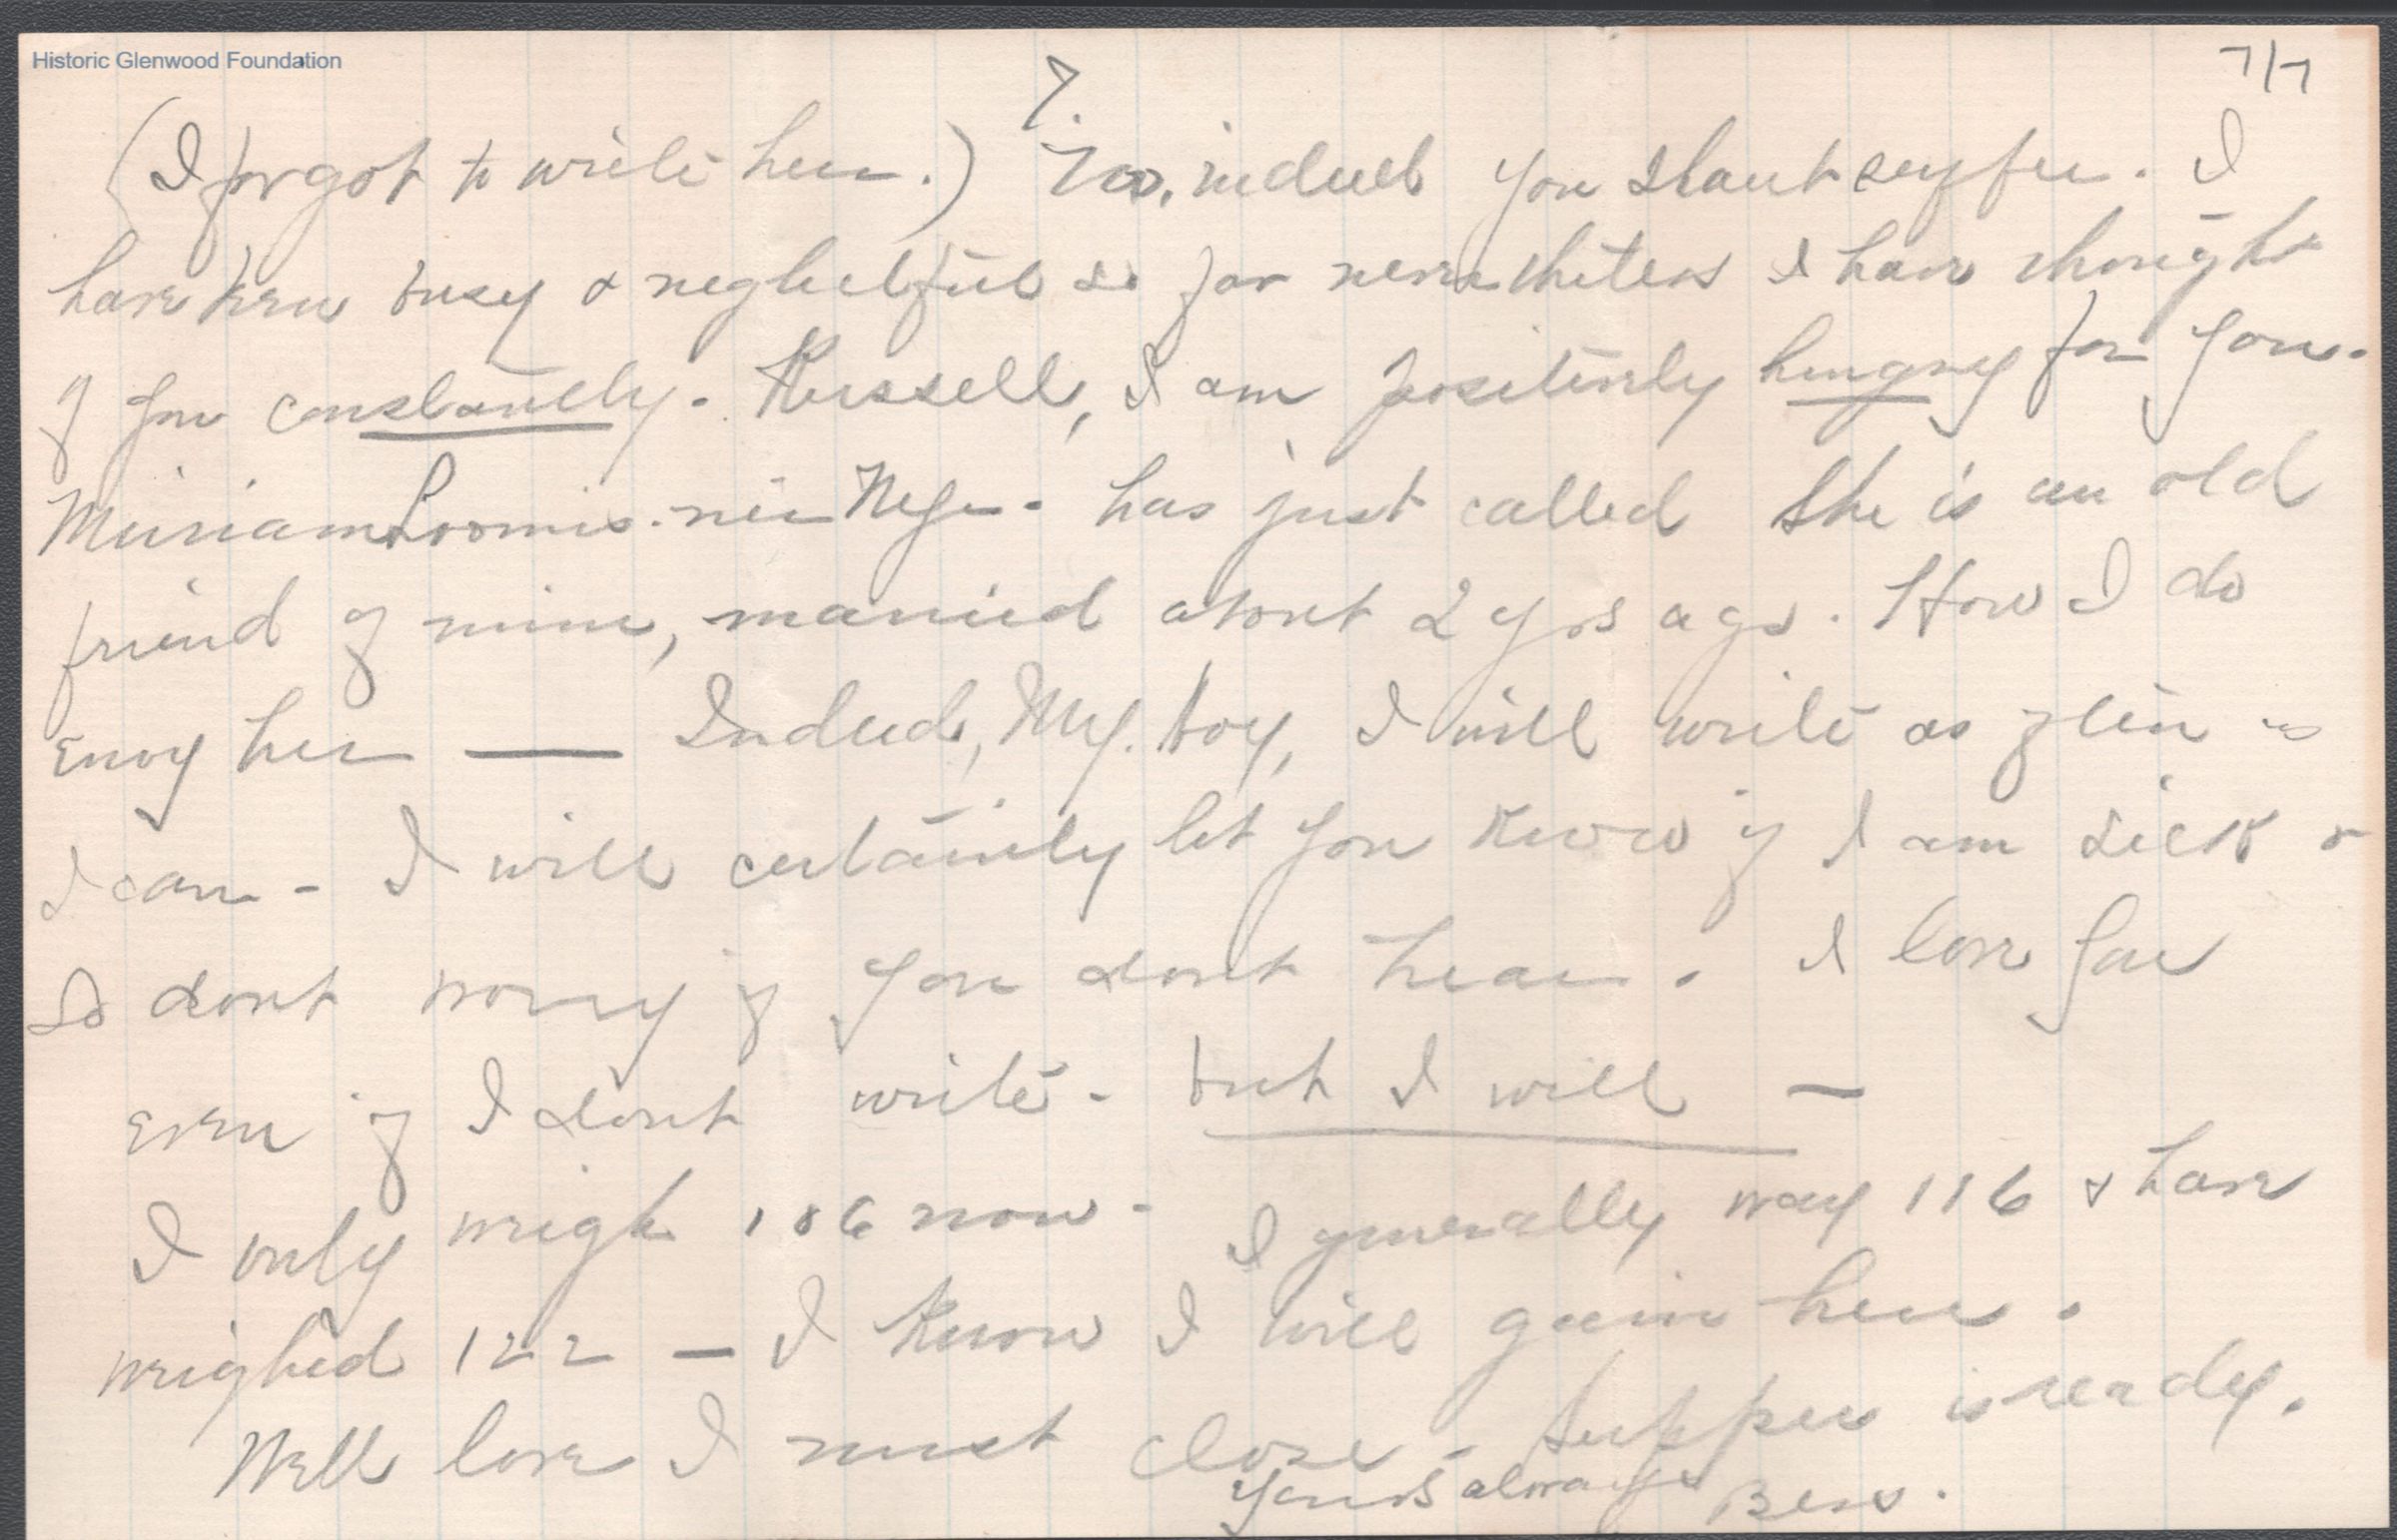 Historic Glenwood Foundation
7/7
7.
(I forgot to write her.) No, indeed you shant suffer. I
have been busy & neglectful so far nevertheless I have thought
of you constantly. Russell, I am positively hungry for you.
Miriam Loomis. nee Nye - has just called She is an old
friend of mine, married about 2 yrs ago. How I do
envy her — Indeed, My. boy, I will write as often as
I can - I will certainly let you know if I am sick &
so dont worry if you dont hear. I love you
even if I dont write - but I will —
I only weigh 106 now - I generally way 116 & have
weighed 122 — I know I will gain here.
Well love I must close - Supper is ready.
Yours always Bess.